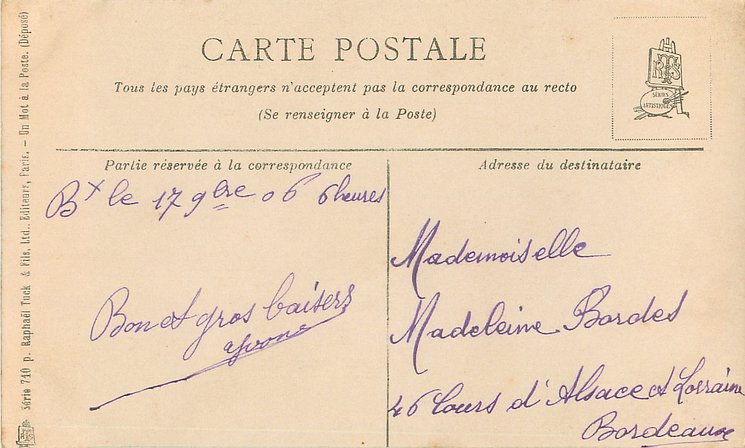 CARTE POSTALE
Tous les pays étrangers n'acceptent pas la correspondance au recto
(Se renseigner à la Poste)
RTS
SÉRIES
ARTISTIQUES
Partie réservée à la correspondance
Bx le 17 9bre 06 6 heures
Bon et gros baisers
Yvonne
Adresse du destinataire
Mademoiselle
Madeleine Bordes
46 Cours d'Alsace et Lorraine
Bordeaux
Série 710 p. Raphaël Tuck & Fils, Ltd., Editeurs, Paris. – Un Mot à la Poste. (Déposé)